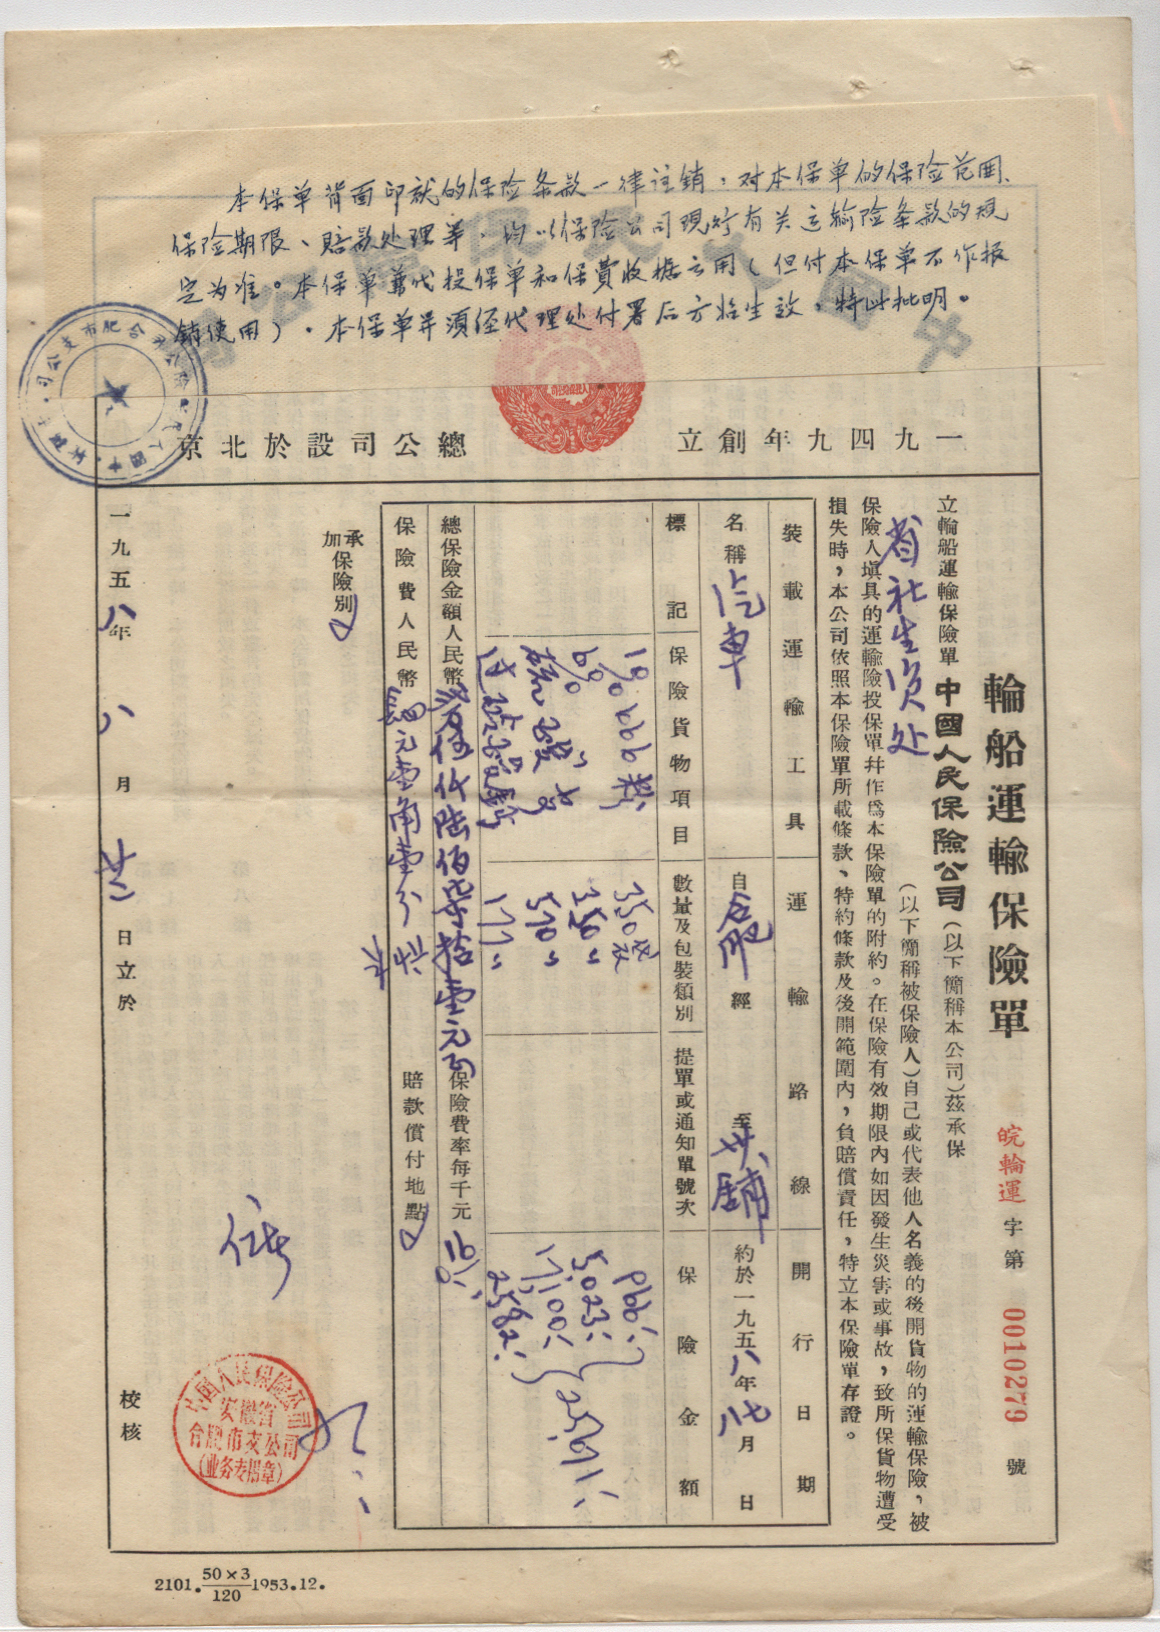 本保单背面印就的保险条款一律注銷，对本保单的保险范囲、
保险期限、賠款处理等，均以保险公司現行有关运輸险条款的規
定为准。本保单兼代投保单和保費收据之用（但付本保单不作报
銷使用）。本保单并須经代理处付署后方始生效，特此批明。
中國人民保險公司
一九四九年創立
總公司設於北京
輪船運輸保險單
皖輪運 字第 0010279 號
立輪船運輸保險單 中國人民保險公司（以下簡稱本公司）茲承保
省社生资处（以下簡稱被保險人）自己或代表他人名義的後開貨物的運輸保險，被
保險人填具的運輸險投保單幷作爲本保險單的附約。在保險有效期限內如因發生災害或事故，致所保貨物遭受
損失時，本公司依照本保險單所載條款、特約條款及後開範圍內，負賠償責任，特立本保險單存證。
裝載運輸工具
運輸路線
開行日期
名稱 汽車
自 合肥 經 至 廿鋪
約於一九五八年 月 日
標記
保險貨物項目
數量及包裝類別
提單或通知單號次
保險金額
1% 666粉
350袋
6% 〃
350〃
5023.
570〃
17100.
177〃
2582.
25671.
總保險金額人民幣 貳万伍仟陆佰柒拾壹元正
保險費率每千元
保險費人民幣 肆元壹角壹分
賠款償付地點
承
加保險別
一九五八年 八 月 廿二 日立於
校核
中国人民保险公司
安徽省
合肥市支公司
（业务专用章）
2101. 50×3/120 1953.12.